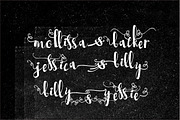 mollissa & backer
jessica & billy
lilly & yessie